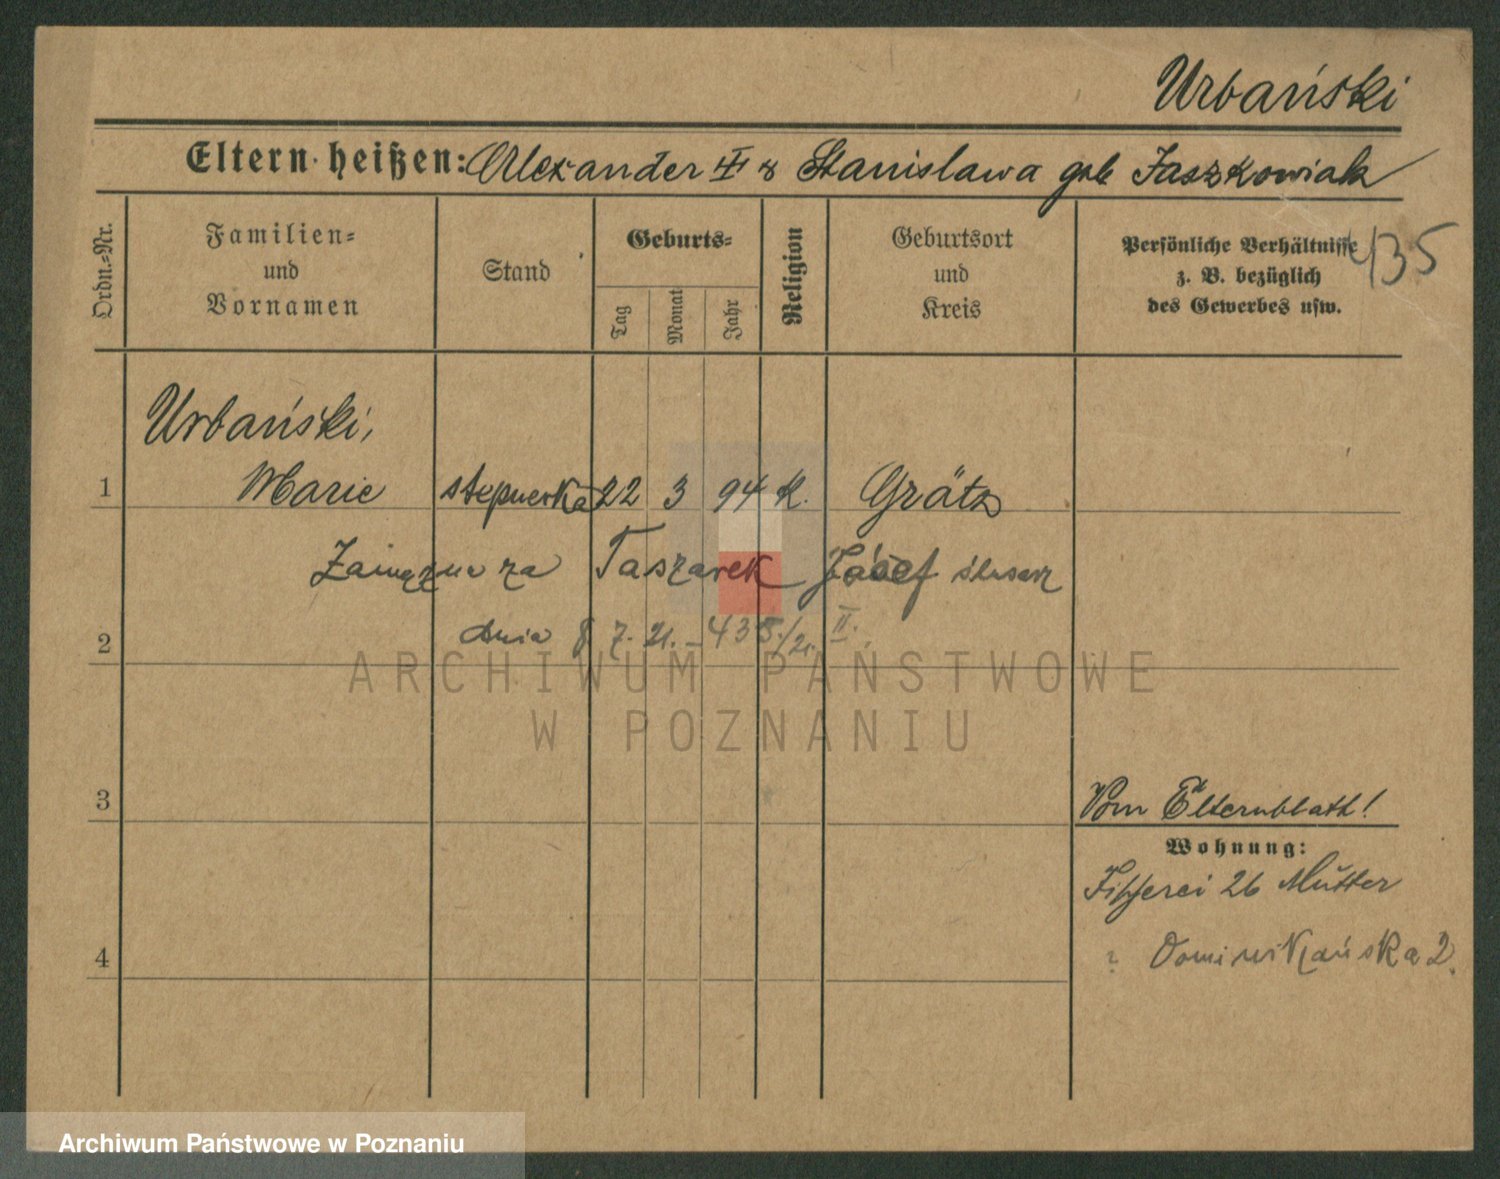 Urbański
Eltern heißen: Alexander II & Stanislawa geb Jaszkowiak
Ordn.=Nr.
Familien=
und
Vornamen
Stand
Geburts=
Tag
Monat
Jahr
Religion
Geburtsort
und
Kreis
Persönliche Verhältnisse
z. B. bezüglich
des Gewerbes usw.
435
Urbański,
1 Marie stepnerka 22 3 94 K. Grätz
za Taszarek Józef ślusarz
dnia 8 7. 21. – 435/21. II.
2
ARCHIWUM PAŃSTWOWE
W POZNANIU
3
Vom Elternblatt!
Wohnung:
Fischerei 26 Mutter
4
? Dominikańska 2.
Archiwum Państwowe w Poznaniu